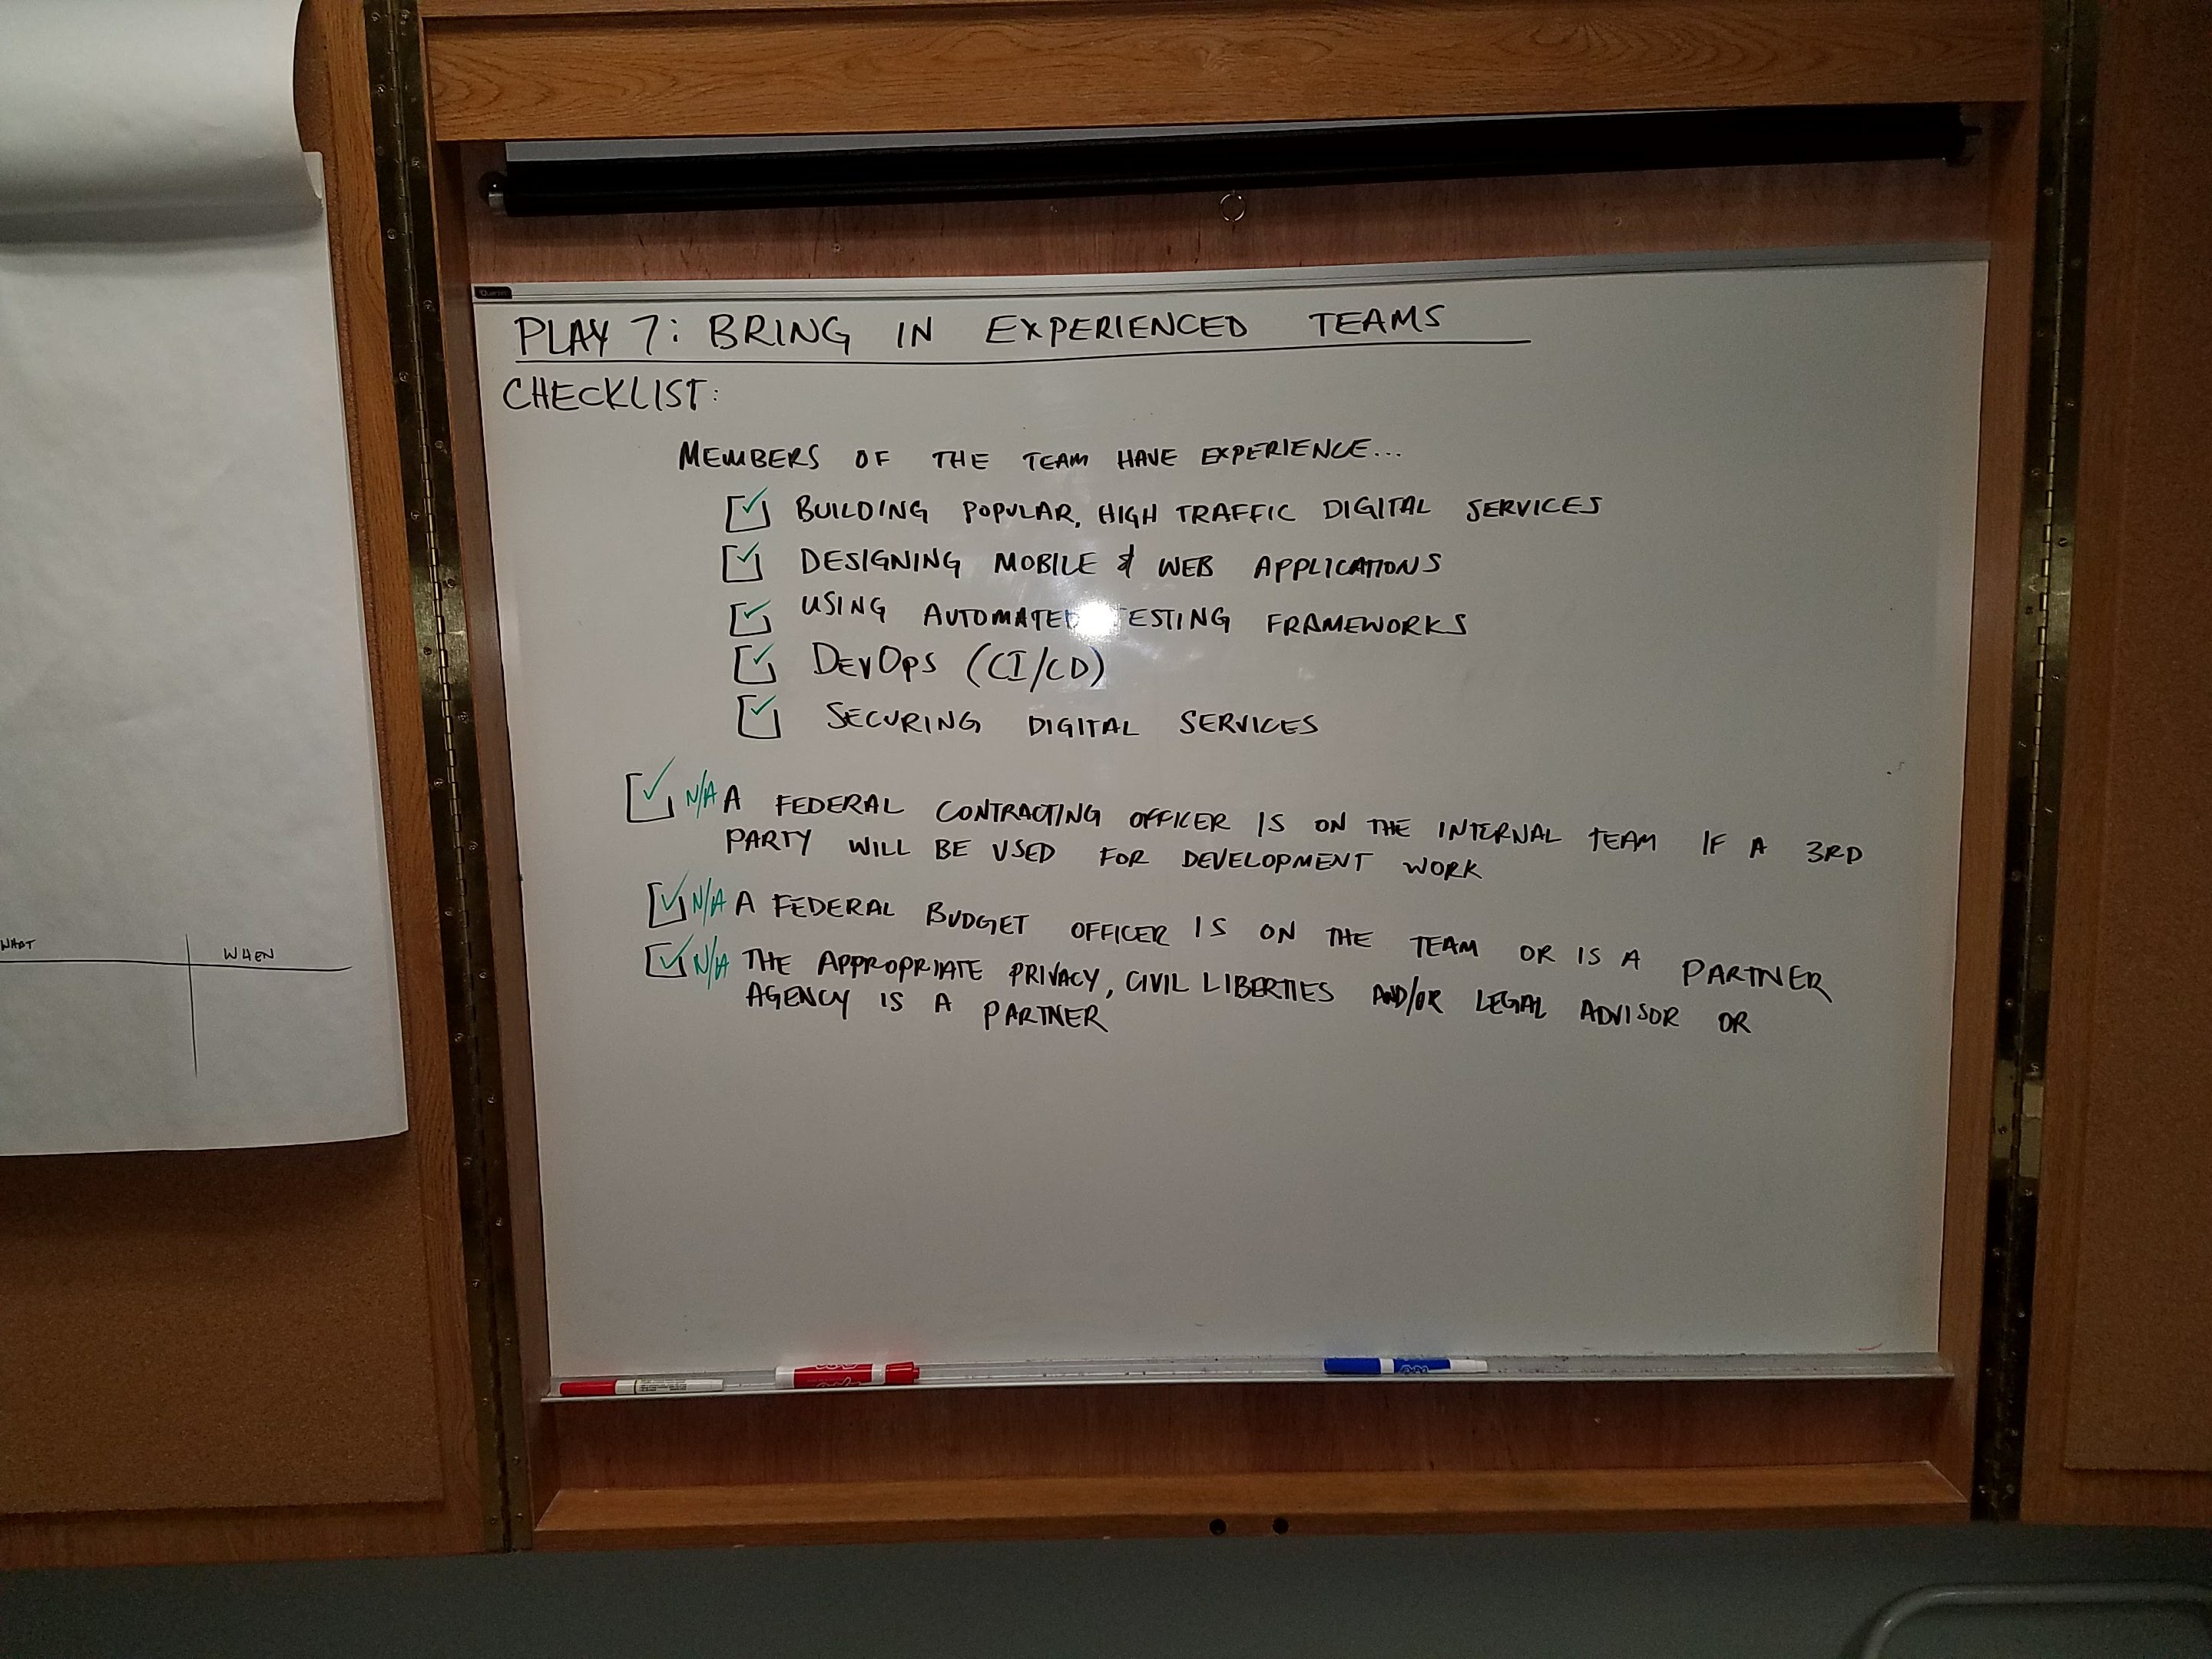 PLAY 7: BRING IN EXPERIENCED TEAMS
CHECKLIST:
MEMBERS OF THE TEAM HAVE EXPERIENCE...
BUILDING POPULAR, HIGH TRAFFIC DIGITAL SERVICES
DESIGNING MOBILE & WEB APPLICATIONS
USING AUTOMATED TESTING FRAMEWORKS
DevOps (CI/CD)
SECURING DIGITAL SERVICES
N/A A FEDERAL CONTRACTING OFFICER IS ON THE INTERNAL TEAM IF A 3RD
PARTY WILL BE USED FOR DEVELOPMENT WORK
N/A A FEDERAL BUDGET OFFICER IS ON THE TEAM OR IS A PARTNER
N/A THE APPROPRIATE PRIVACY, CIVIL LIBERTIES AND/OR LEGAL ADVISOR OR
AGENCY IS A PARTNER
WHAT WHEN